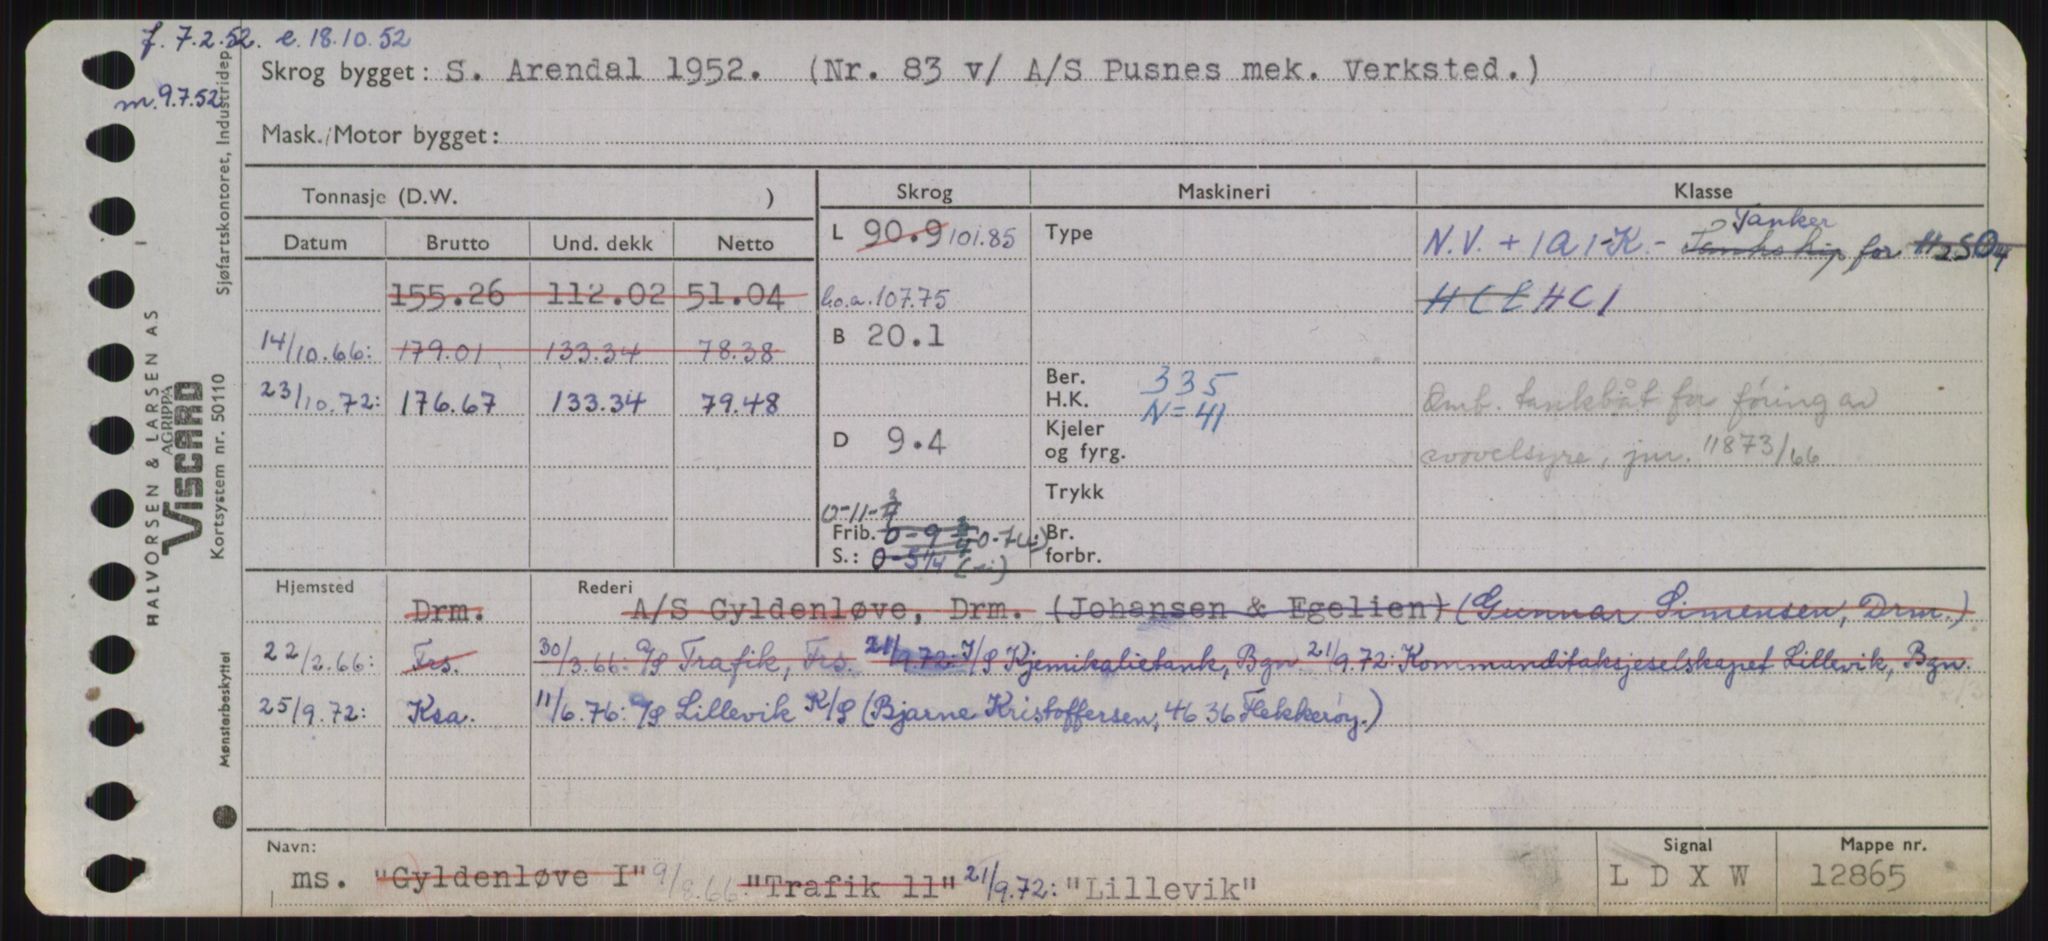 f. 7.2.52. e. 18.10.52
m. 9.7.52
Skrog bygget: S. Arendal 1952. (Nr. 83 v/ A/S Pusnes mek. Verksted.)
Mask./Motor bygget:
Tonnasje (D.W. )
Skrog
Maskineri
Klasse
Datum
Brutto
Und. dekk
Netto
L 90.9 101.85
Type
Tanker
N.V. + 1A1-K.- Tankship for H2SO4
155.26 112.02 51.04
l.o.a. 107.75
HCL HCl
14/10.66: 179.01 133.34 78.38
B 20.1
23/10.72: 176.67 133.34 79.48
Ber.
H.K.
335
N=41
Omb. tankbåt for föring av
svovelsyre, jnr. 11873/66
D 9.4
Kjeler
og fyrg.
Trykk
0-11-
Frib. 0-9
S.: 0-5 1/4
Br.
forbr.
Hjemsted
Rederi
Drm. A/S Gyldenløve, Drm. (Johansen & Egelien) (Gunnar Simensen, Drm.)
22/2.66: Frs. 30/3.66: A/S Trafik, Frs. 21/9.72: I/S Kjemikalietank, Bgn 21/9.72: Kommandittaksjeselskapet Lillevik, Bgn.
25/9.72: Ksa. 11/6.76: A/S Lillevik K/S (Bjarne Kristoffersen, 4636 Flekkerøy.)
Navn:
Signal
Mappe nr.
ms. "Gyldenløve I" 9/8.66: "Trafik 11" 21/9.72: "Lillevik"
L D X W
12865
HALVORSEN & LARSEN AS
AGRIPPA
VISCARD
Kortsystem nr. 50110
Sjøfartskontoret, Industridep
Mønsterbeskyttet